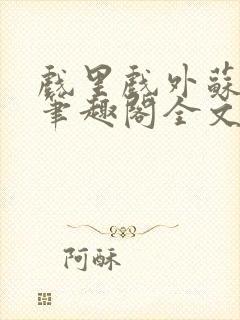 戲里戲外蘇
筆趣閣全文
阿酥